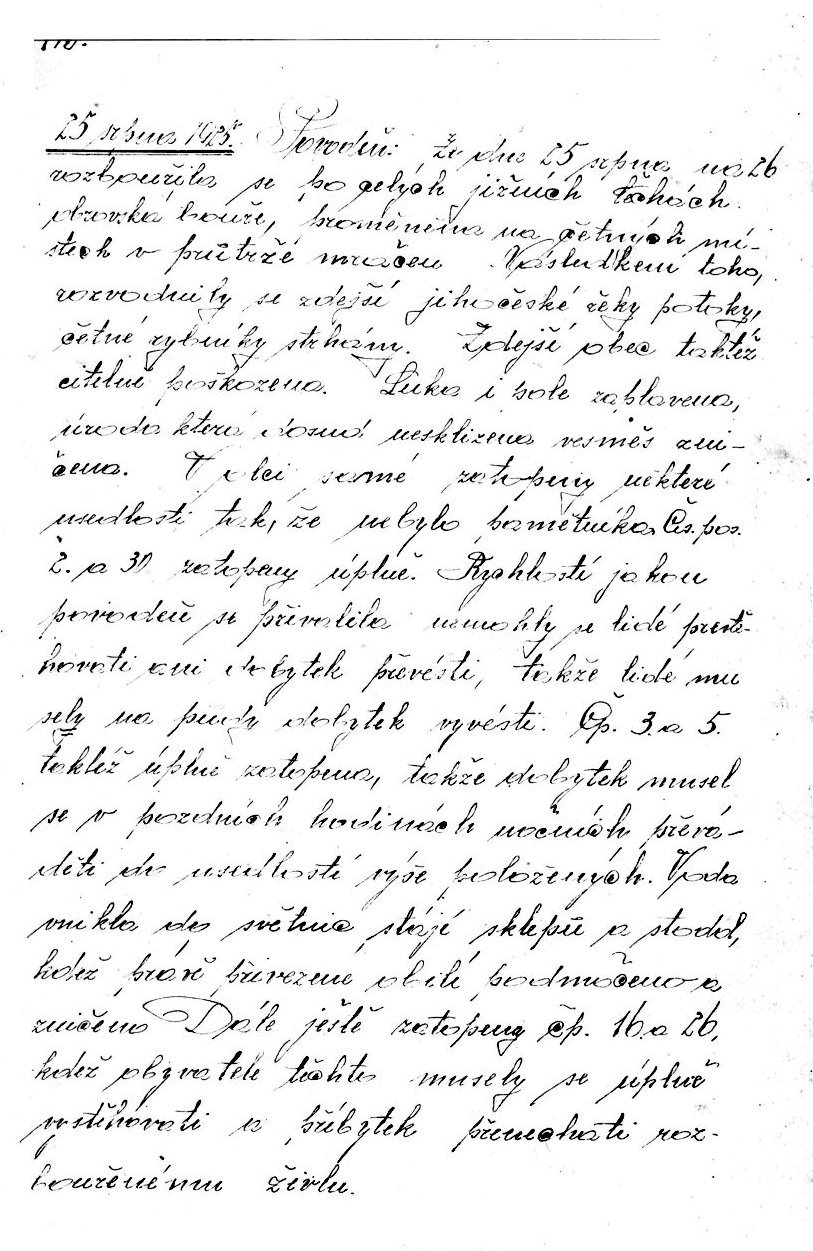 25 srpna 1925. Povodeň: Ze dne 25 srpna na 26
rozbouřila se po celých jižních Čechách
obrovská bouře, proměněna na četných mí-
stech v průtrže mračen Následkem toho,
rozvodnily se zdejší jihočeské řeky potoky,
četné rybníky strhány. Zdejší obec taktéž
citelně poškozena. Luka i pole zaplavena,
úroda která dosud nesklizena vesměs zni-
čena. V obci samé zatopeny některé
usedlosti tak, že nebylo pamětníka Čís. pos.
2. a 30 zatopeny úplně. Rychlostí jakou
povodeň se přivalila nemohly se lidé přestě-
hovati ani dobytek převésti, takže lidé mu
sely na pudy dobytek vyvésti. Čp. 3. a 5.
taktéž úplně zatopena, takže dobytek musel
se v pozdních hodinách nočních převá-
děti do usedlostí výše položených. Voda
vnikla do světnic stájí sklepů a stodol,
kdež právě přivezené obilí podmočeno a
zničeno Dále ještě zatopeny čp. 16. a 26,
kdež obyvatelé těchto musely se úplně
vystěhovati a příbytek přenechati roz-
bouřenému živlu.